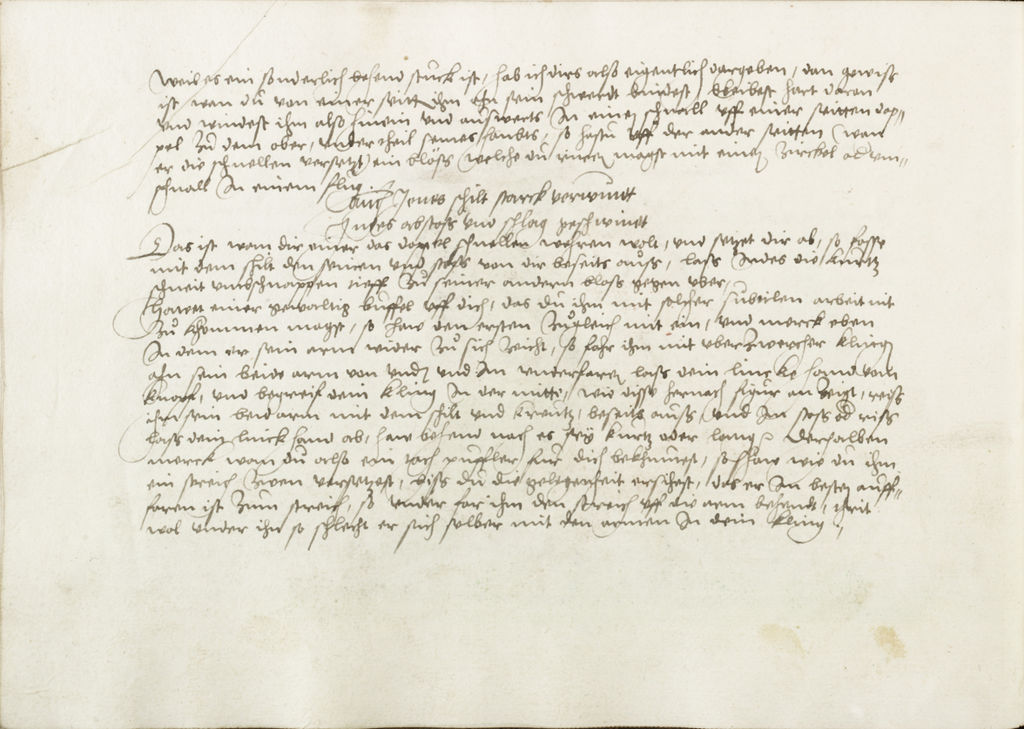 weil es ein sonderlich behend stuck ist, hab ich dirs also eigentlich dargeben, dan gewiss
ist, wan du von einer seitt ihm ahn sein schwerdt bindest, bleibest hart daran
und windest ihm also hinein und auswerts In einem schnall uff einer seitten dop=
pel zu dem ober, under theil seines haubts, so hastu uff der ander seitten wan
er die schnellen versetzt ein blöss, welche du rüren magst mit einem Zirckel od um=
schnall In einem flug.
Auch Jenes schilt starck verwundt
Indes abstoss und schlag geschwindt
Das ist wann dir einer das doppel schnellen wehren wolt, und setzet dir ab, so fasse
mit dem schilt den seinen und stoss von dir beseits auss, lass Indes die kurtz
schneit umbschnappen tieff zu seiner andern bloss gegen uber,
Hawett einer gewaltig büffel uff dich, das du ihm mit solcher subtilen arbeit nit
zu khommen magst, so haw den ersten zugleich mit ein, und merck eben
In dem er sein arm wider zu sich zeicht, so fahr ihm mit uberzwercher kling
ahn sein beide arm von undn und Im underfaren lass dein lincke hand vom
knopf, und begreif dein kling In der mitte, wie disse hernach figur an zeigt, reiss
ihm sein beid arm mit dem schilt und kreutz, beseits auss, und Im stoss od riss
lass dein linck hand ab, haw behend nach es sey kurtz oder lang Derhalben
merck wann du also ein solch püffler für dich bekhumest, so schaw wie du ihm
ein streich zwen versetzest, biss du die gelegenheit ersihest, das er Im besten auff=
faren ist zum streich, so under far ihm den streich uff die arm behendt, schreit
wol under ihn so schlecht er sich selber mit den armen In dein kling,